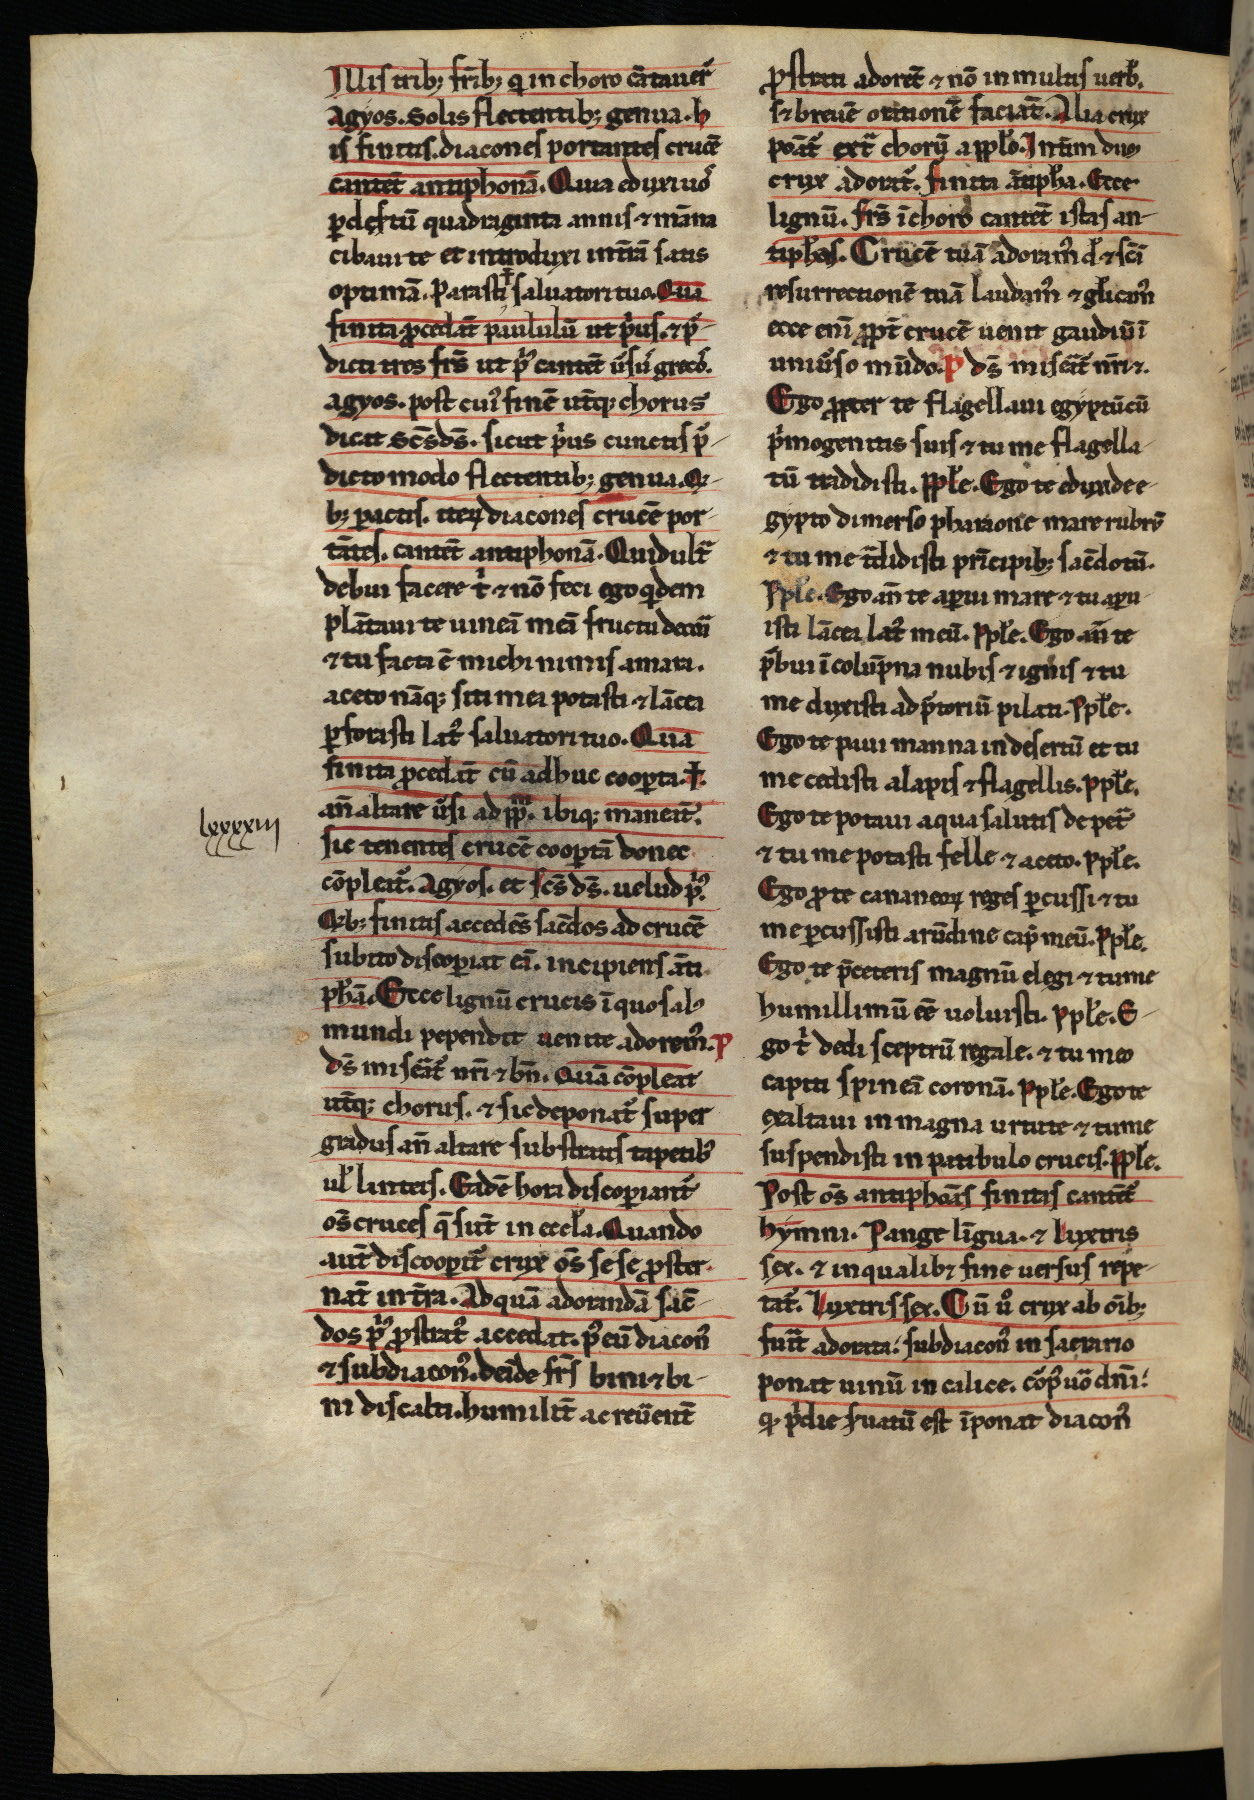 Illis trib; frīb; q̄ in choro cātauer̄
agyos. Solis flectentib; genua. h
is finitis. diacones portantes crucē
cantēt antiphonā. Quia eduxi uos
p̱ desertū quadraginta annis ⁊ māna
cibaui te et introduxi in t̄rā satis
optimā. Parasti † saluatori tuo. Qua
finita p̱cedāt paululū ut pͥus. ⁊ p̄
dicti tres fr̄s ut pͥ cantēt ūsū grecū.
agyos. post cuiꝰ finē utq̄; chorus
dicit Sc̄s ds̄. sicut pͥus cunctis p̄
dicto modo flectentib; genua. Q̄
b; pactis. iteꝝ diacones crucē por
tātes. cantēt antiphonā. Quid ultͣ
debui facere tͥ ⁊ nō feci ego qͥdem
plātaui te uineā meā fructu decorā
⁊ tu facta ē michi nimis amara.
aceto nāq; sitī mea potasti ⁊ lācea
p̱forasti latꝰ saluatori tuo. Qua
finita p̱cedāt cū adhuc coop̱ta. †.
an̄ altare ūsi ad pp̄lm̄. ibiq; maneāt.
sic tenentes crucē coop̱tā donec
cōpleat᷑. Agyos. et sc̄s ds̄. uelud pͥꝰ.
Qͥb; finitis accedēs sac̄dos ad crucē
subito discoop̱iat eā. incipiens āti
phā. Ecce lignū crucis ī quo salꝰ
mundi pependit uenite adoremꝰ. P
ds̄ miseat᷑ nr̄i ⁊ bn̄. Quā cōpleat
utq̄; chorus. ⁊ sic deponat᷑ super
gradus an̄ altare substratis tapetibꝰ
ul̄ linteis. Eadē hora discoop̱iant᷑
os̄ cruces q̄ sūt in eccl̄a. Quando
aut̄ discoop̱it᷑ crux os̄ se se p̱ster
nāt in t̄ra. Ad quā adorandā sac̄
dos pͥꝰ p̱stratꝰ accedat. p̄ eū diaconꝰ
⁊ subdiaconꝰ. deīde fr̄s bini ⁊ bi
ni discalti. humilit̄ ac reūent̄
lxxxxiii
p̱strati adorēt ⁊ nō in multis uerb̄.
s; breuē orationē faciāt. Alia crux
poāt᷑ extͣ chorū a pp̄lo. Int̄im dū
crux adorat᷑. finita ātiph̄a. Ecce
lignū. fr̄s ī choro cantēt istas an
tiphas. Crucē tuā adoramꝰ d̄. ⁊ sc̄ā
resurrectionē tuā laudamꝰ ⁊ gl̄ificamꝰ
ecce enī pp̄t̄ crucē uenit gaudiū ī
uniūso mūdo. P ds̄ miseat᷑ nr̄i ⁊.
Ego pp̄ter te flagellaui egyptū cū
pͥmogenitis suis ⁊ tu me flagella
tū tradidisti. Pple̅. Ego te eduxi de e
gypto dimerso pharaone mare rubrū
⁊ tu me tͣdidisti prīcipib; sac̄dotū.
Pple̅. Ego an̄ te ap̱ui mare ⁊ tu ap̱u
isti lācea latꝰ meū. Pple̅. Ego an̄ te
p̄bui ī colūpna nubis ⁊ ignis ⁊ tu
me duxisti ad p̄toriū pilati. Pple̅.
Ego te paui manna in desertū et tu
me cedisti alapis ⁊ flagellis. Pple̅.
Ego te potaui aqua salutis de petͣ
⁊ tu me potasti felle ⁊ aceto. Pple̅.
Ego p̱ te cananeoꝝ reges p̱cussi ⁊ tu
me p̱cussisti arūdine cap̄ meū. Pple̅.
Ego te p̄ ceteris magnū elegi ⁊ tu me
humillimū eē uoluisti. Pple̅. E
go tͥ dedi sceptrū regale. ⁊ tu meo
capiti spineā coronā. Pple̅. Ego te
exaltaui in magna uirtute ⁊ tu me
suspendisti in patibulo crucis. Pple̅.
Post os̄ antiphonas finitis cantēt᷑
hȳmni. Pange līgua. ⁊ Lustris
sex. ⁊ in qualib; fine uersus repe
tat᷑. Lustris sex. Cū ū̊ crux ab oīb;
fūit adorata: subdiaconꝰ in sacrario
ponat uinū in calice. corpꝰ uͦ dn̄i:
q̄ pͥdie ſuatū est īponat diaconꝰ